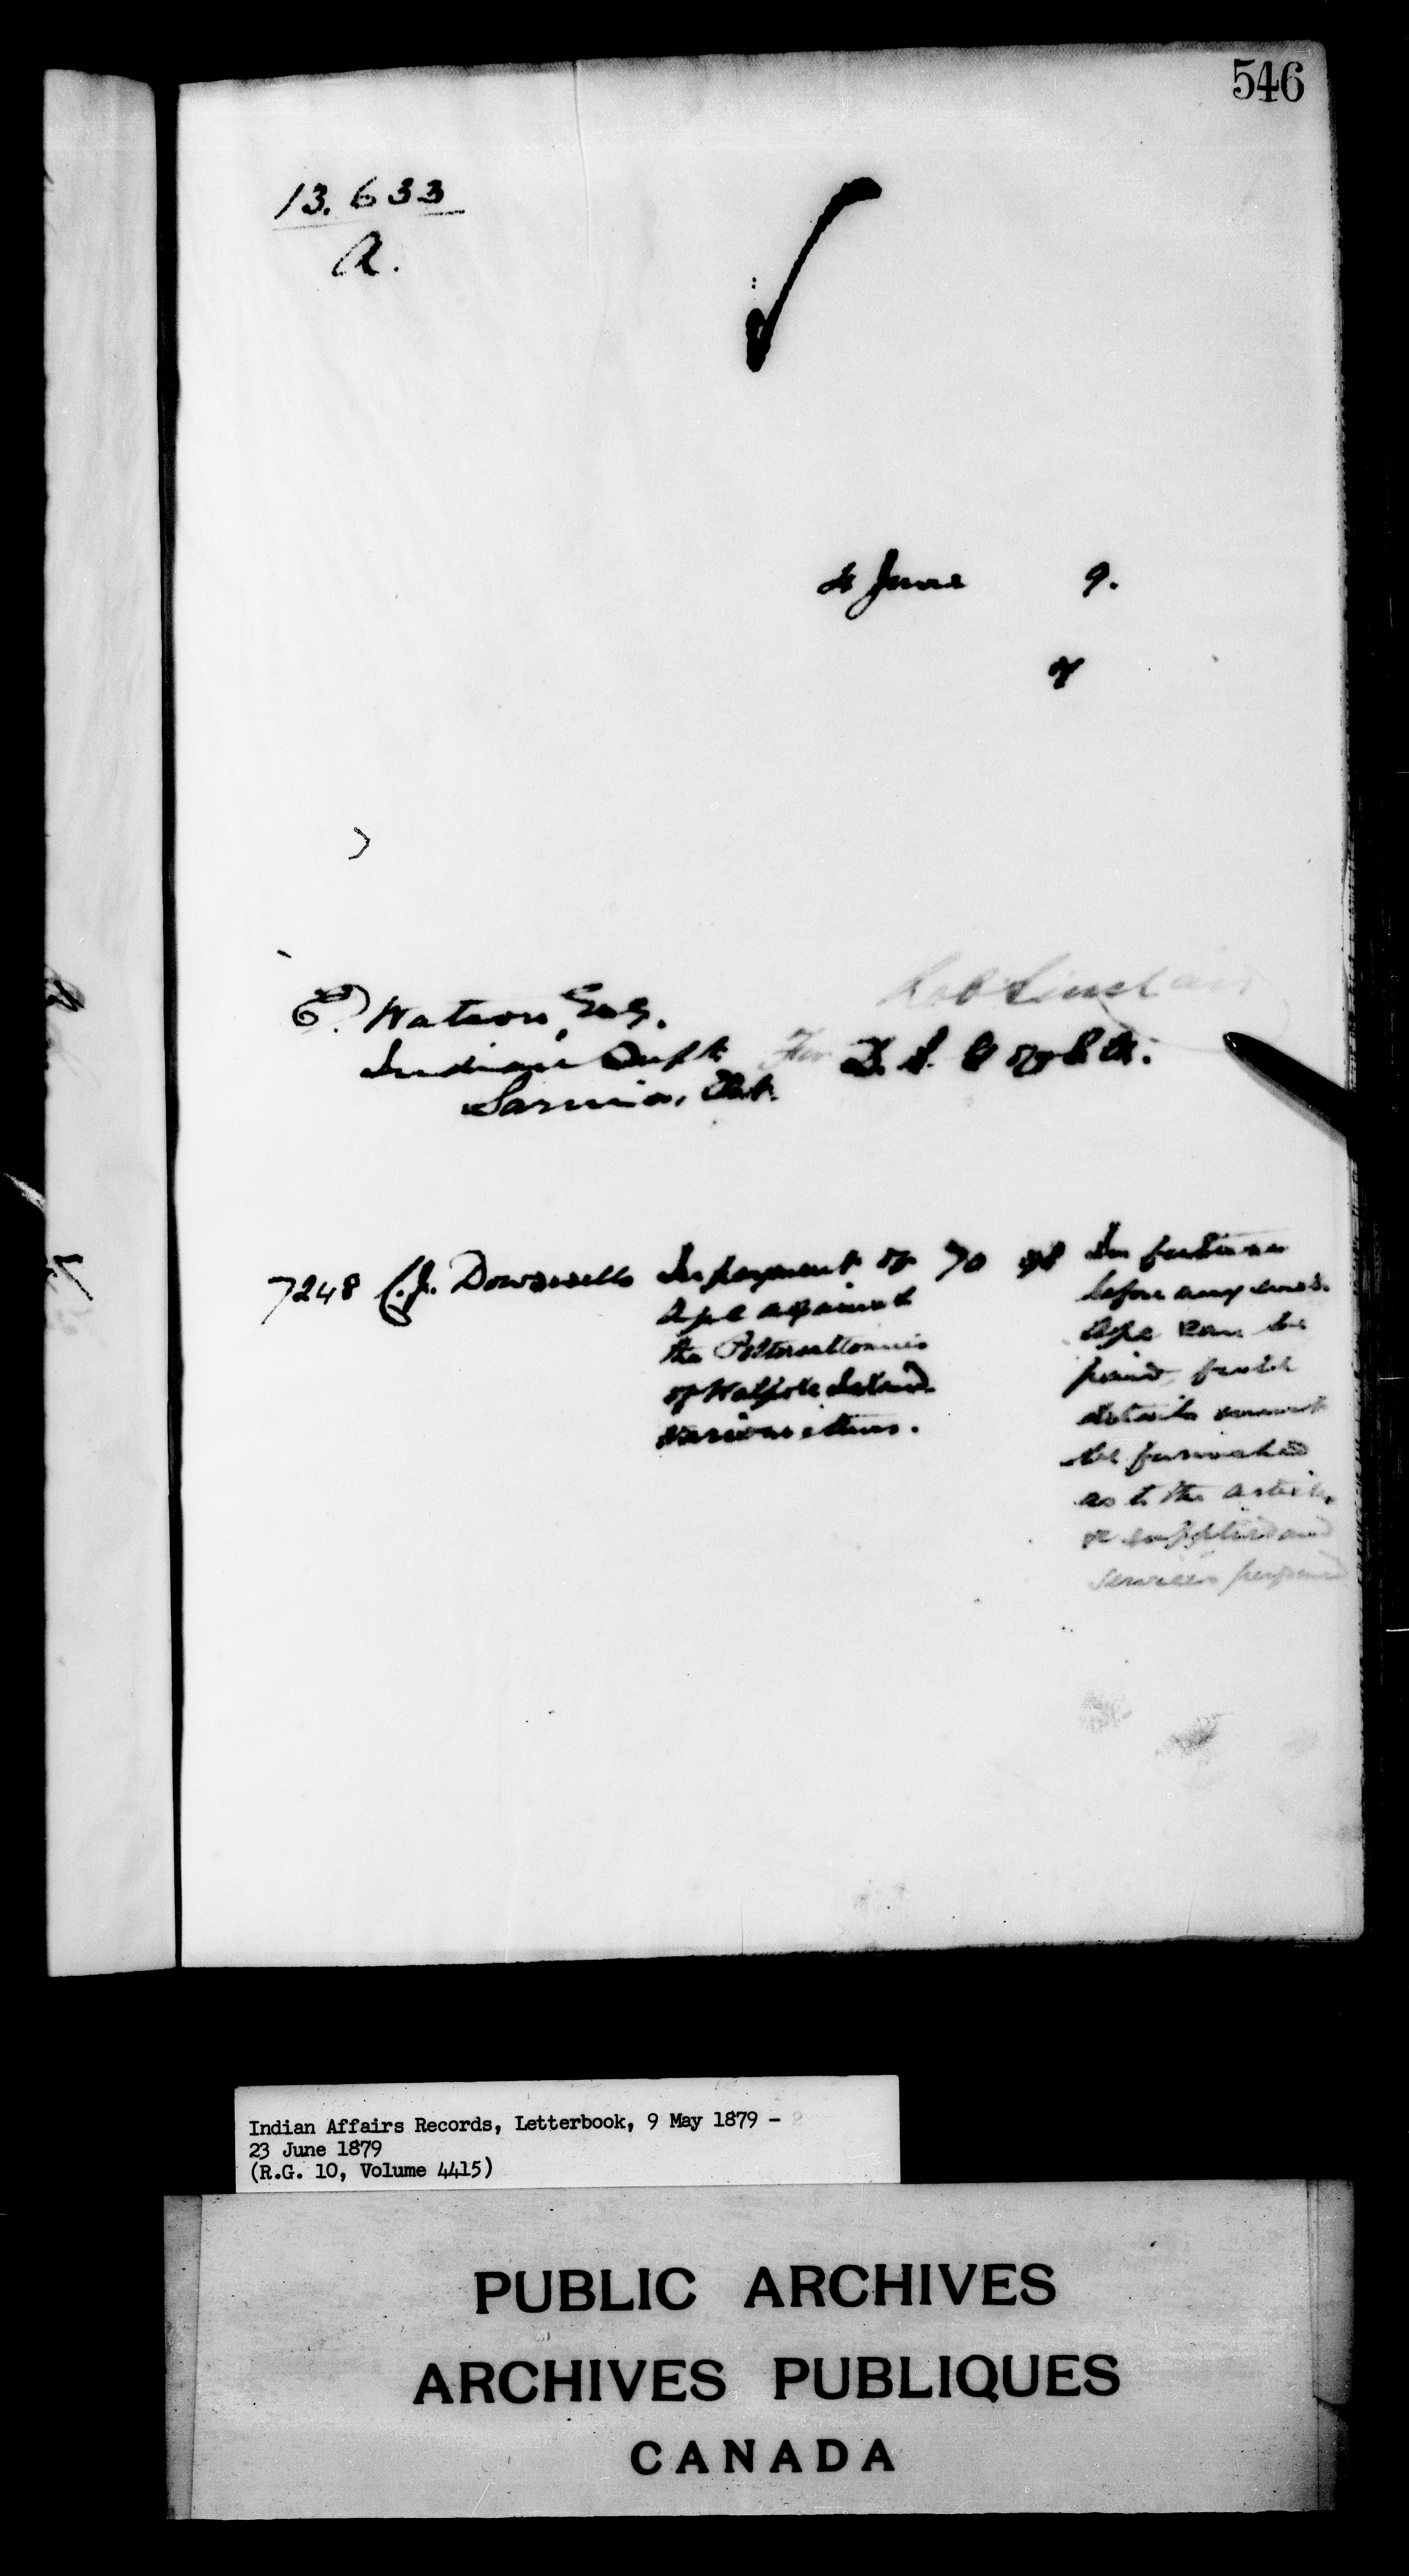 546
13.633
A.
4 June 9.
E. Watson, Esq.
Indian Supt
Sarnia, Ont.
Rob Sinclair
For D. S. G of I. A.
7248 C. J. Dowswells In payment of 70
a/c against
the Pottawattomies
of Walpole Island
various items.
In future
before any such
a/cs can be
paid, full
details must
be furnished
as to the articles
supplied and
services performed
Indian Affairs Records, Letterbook, 9 May 1879 -
23 June 1879
(R.G. 10, Volume 4415)
PUBLIC ARCHIVES
ARCHIVES PUBLIQUES
CANADA